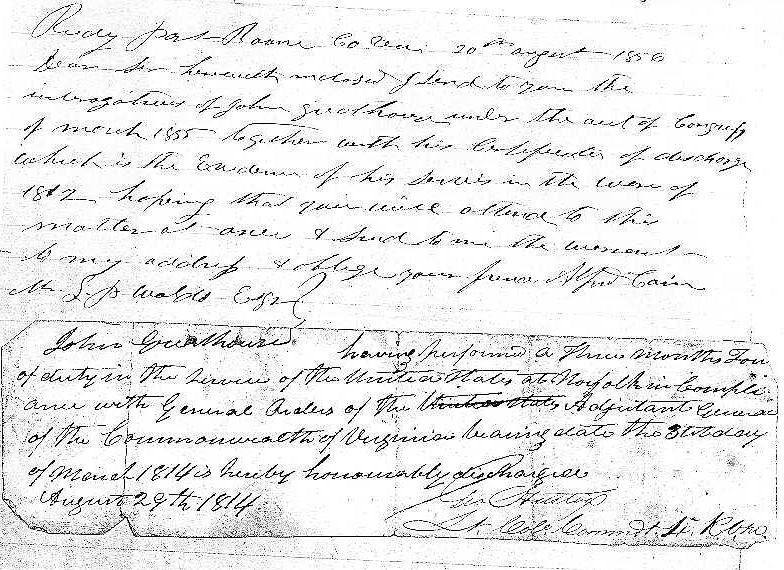 Reedy port Roane Co Ten. 20th august 1856
Dear Sir herewith inclosed I send to you the
interogatories of John greathouse under the act of Congress
of march 1855 together with his Certificate of discharge
which is the Evidence of his Servis in the ware of
1812 hoping that you will attend to this
matter at once & Send to me the warrent
to my address & oblige your friend Alfred Cain
Mr S P Walds Esqr
John Greathouse having performed a three Months Tour
of duty in the Service of the United States at Norfolk in Compli
ance with General Orders of the United States Adjutant General
of the Commonwealth of Virginia bearing date the 31st day
of March 1814 is hereby honourably discharged
August 29th 1814
Lt. Col Commdt